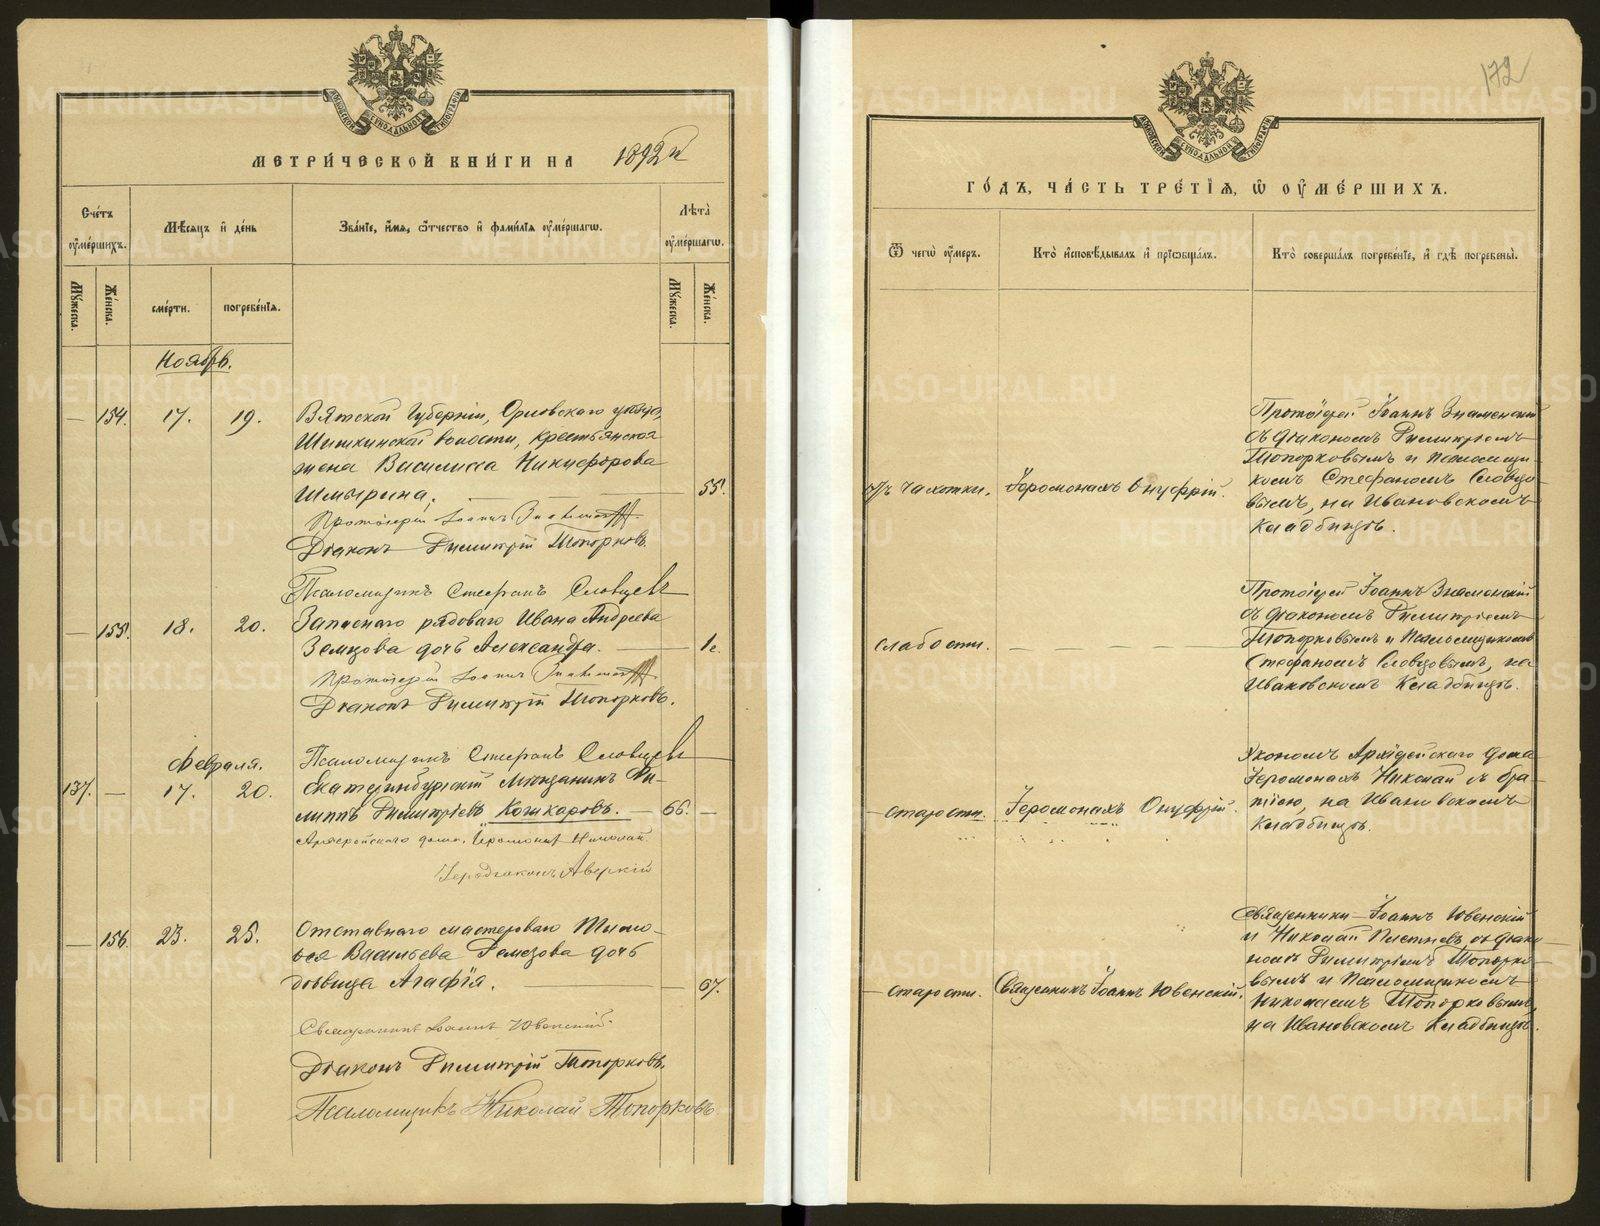 МЕТРИ́ЧЕСКОЙ КНИ́ГИ НА 1892й
Сче́тъ ᲂу҆ме́ршихъ.
Мѣ́сяцъ и҆ де́нь
Зва́нїе, и҆́мя, ѻ҆́тчество и҆ фами́лїя ᲂу҆ме́ршагѡ.
Лѣ́та ᲂу҆ме́ршагѡ.
Му́жеска.
Же́нска.
сме́рти.
погребе́нїя.
Му́жеска.
Же́нска.
Ноябрь.
— 154. 17. 19. Вятской Губерніи, Орловскаго уѣзда,
Шишкинской волости, крестьянская
жена Василисса Никифорова
Шмырина. — 55.
Протоіерей Іоаннъ Знаменскій
Діаконъ Димитрій Топорковъ.
Псаломщикъ Стефанъ Словцевъ
— 155. 18. 20. Запаснаго рядоваго Ивана Андреева
Земцова дочь Александра. — 1г.
Протоіерей Іоаннъ Знаменскій
Діаконъ Димитрій Топорковъ.
Псаломщикъ Стефанъ Словцевъ
Февраля.
137. — 17. 20. Екатеринбургскій мѣщанинъ Фи-
липпъ Димитріевъ Кошкаровъ. — 66. —
Архіерейскаго дома, Іеромонахъ Николай
Іеродіаконъ Аверкій
— 156. 23. 25. Отставнаго мастероваго Тимо-
ѳея Васильева Ремезова дочь
дѣвица Агафія. — 67.
Священникъ Іоаннъ Ювенскій.
Діаконъ Димитрій Топорковъ.
Псаломщикъ Николай Топорковъ
172
ГО́ДЪ, ЧА́СТЬ ТРЕ́ТЇЯ, Ѡ҆ ОУ҆МЕ́РШИХЪ.
Ѿ чегѡ̀ ᲂу҆́меръ.
Кто̀ и҆сповѣ́дывалъ и҆ прїѡбща́лъ.
Кто̀ соверша́лъ погребе́нїе, и҆ гдѣ̀ погребены̀.
Отъ чахотки. Іеромонахъ Онуфрій.
Протоіерей Іоаннъ Знаменскій
съ діакономъ Димитріемъ
Топорковымъ и псаломщи-
комъ Стефаномъ Словцо-
вымъ, на Ивановскомъ
кладбищѣ.
слабости. — — — —
Протоіерей Іоаннъ Знаменскій
съ діакономъ Димитріемъ
Топорковымъ и псаломщикомъ
Стефаномъ Словцовымъ, на
Ивановскомъ кладбищѣ.
— старости. Іеромонахъ Онуфрій.
Экономъ Архіерейскаго дома
Іеромонахъ Николай съ бра-
тіею, на Ивановскомъ
кладбищѣ.
— старости. Священникъ Іоаннъ Ювенскій.
Священники — Іоаннъ Ювенскій
и Николай Плетневъ, съ діако-
номъ Димитріемъ Топорко-
вымъ и псаломщикомъ
Николаемъ Топорковымъ,
на Ивановскомъ кладбищѣ.